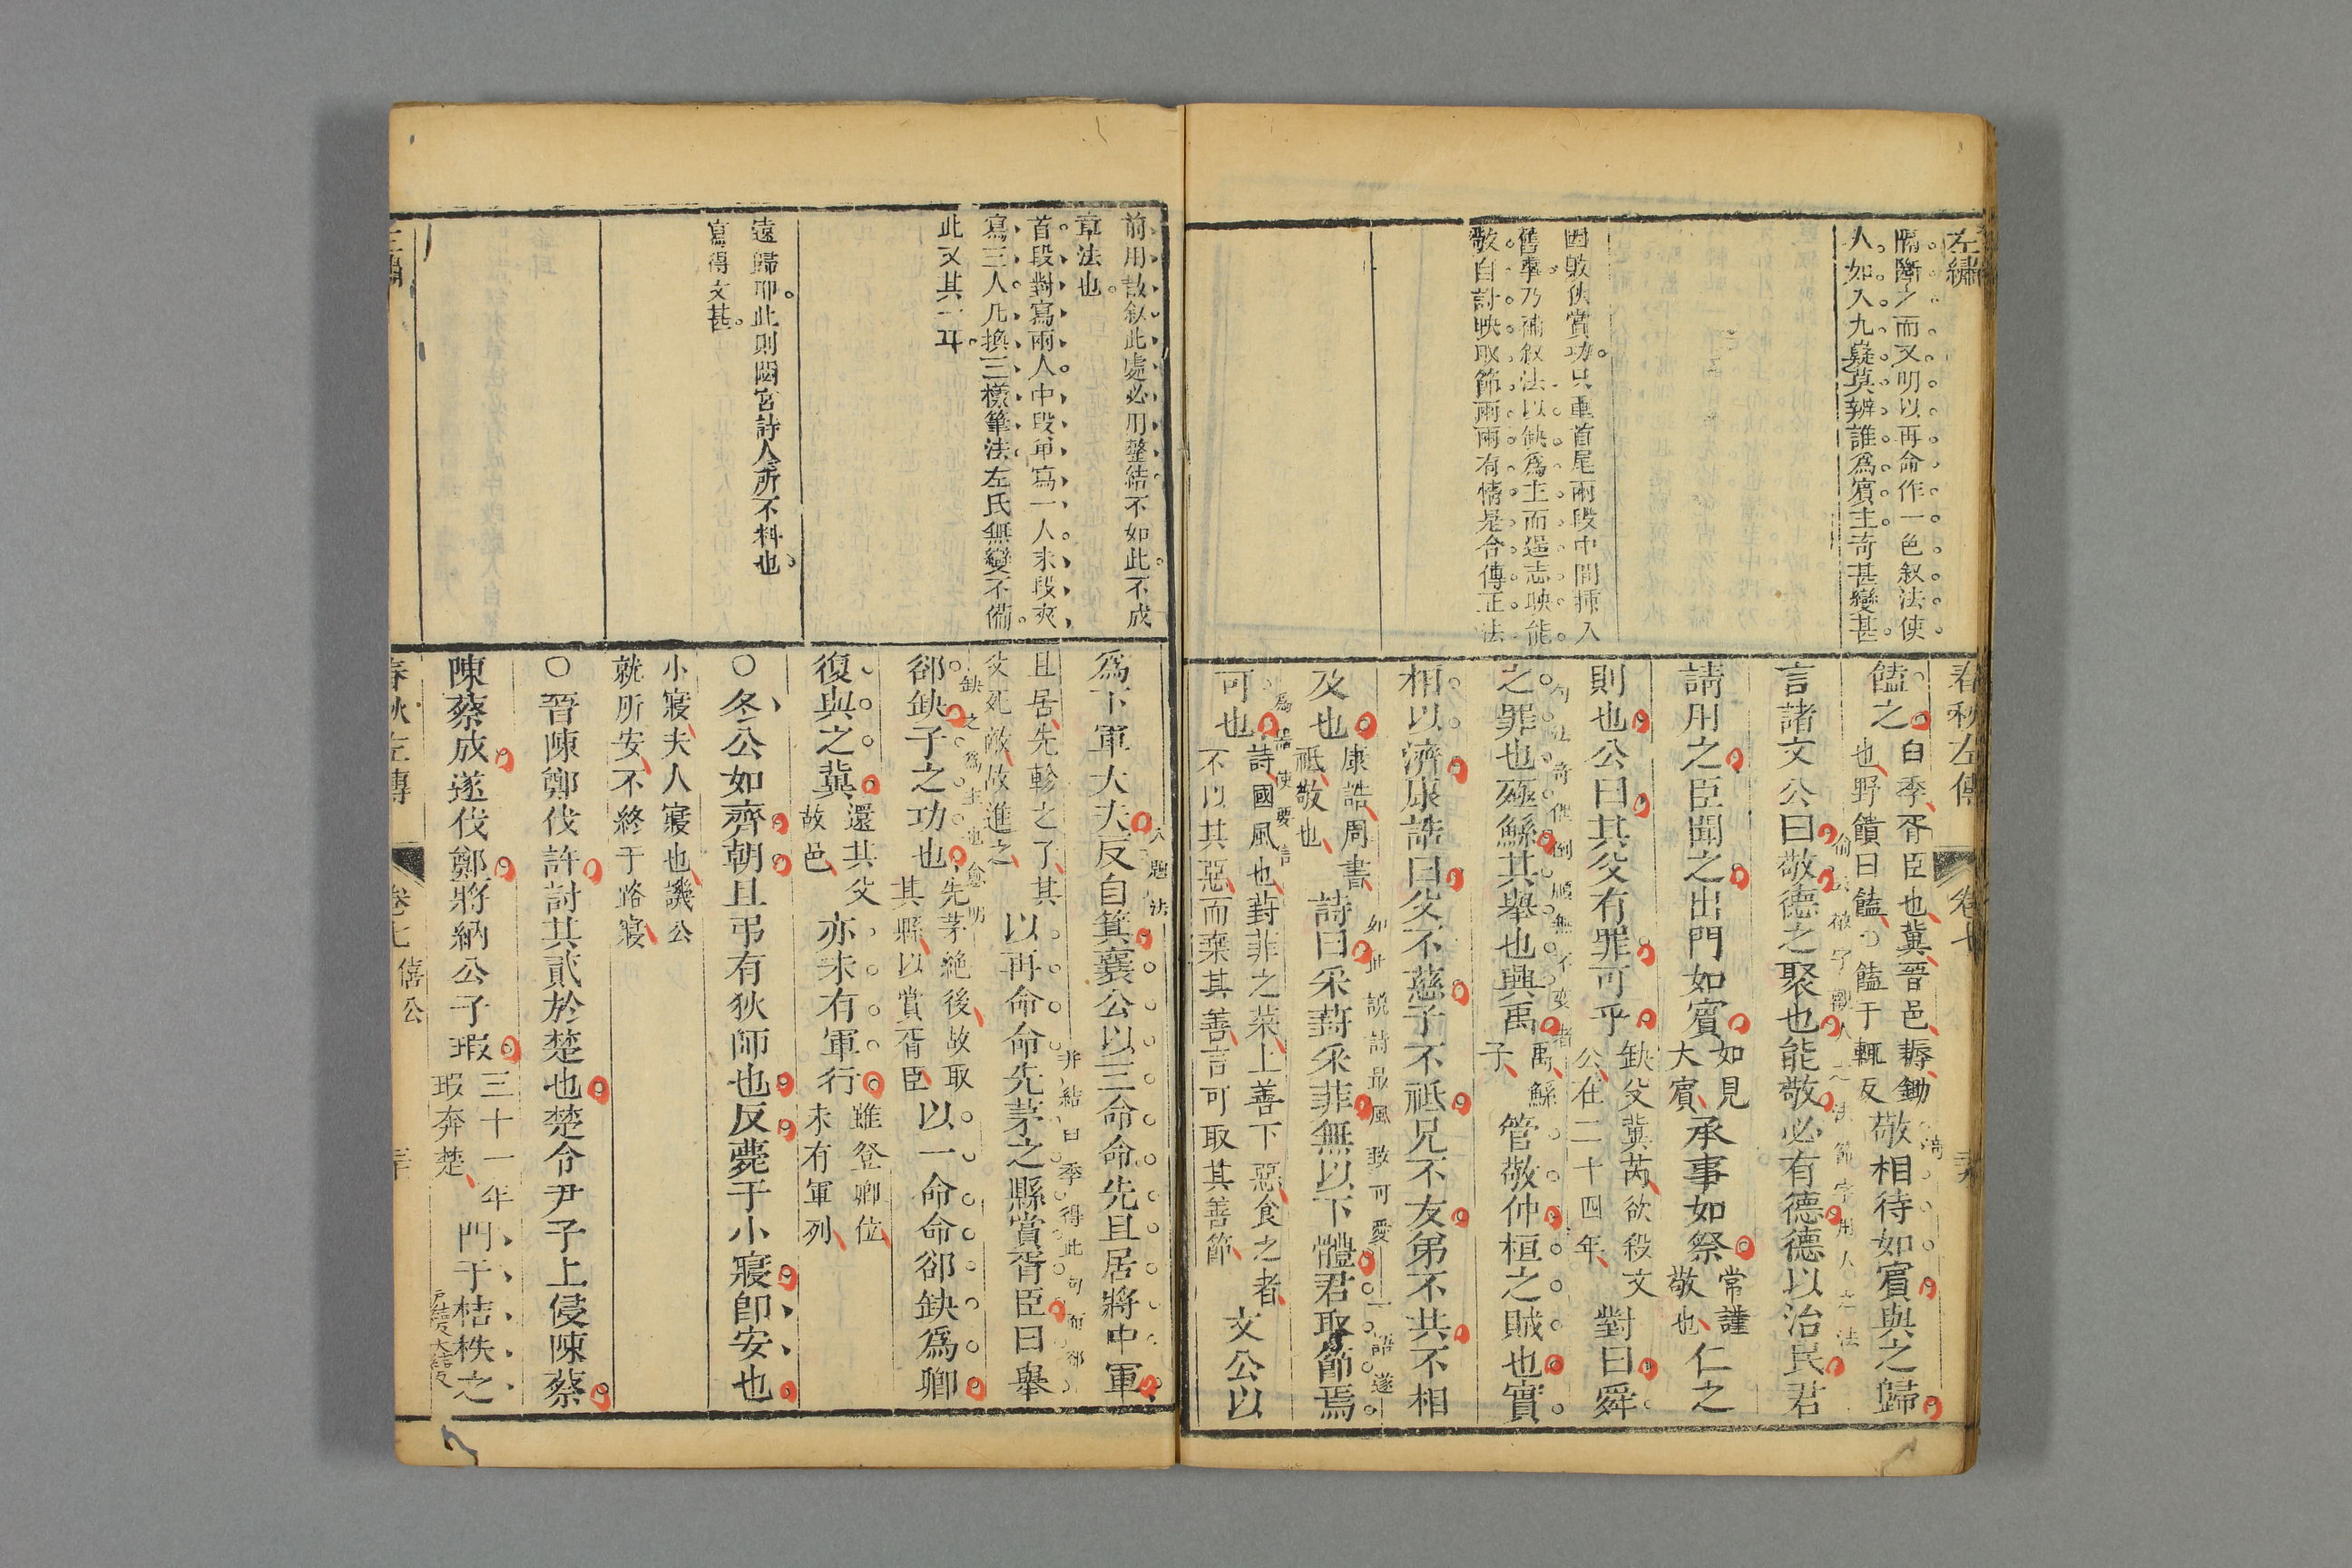 左繡
隔斷之而又明以再命作一色叙法使
人如入九嶷莫辨誰爲賓主奇甚變甚
因敗狄賞功只重首尾兩段中間插入
舊事乃補叙法以缺爲主而遥志映能
敬自討映取節兩兩有情是合傳正法
春秋左傳
卷七
饁之
臼季胥臣也冀晉邑耨鋤
也野饋曰饁○饁于輒反
敬相待如賓與之歸
言諸文公曰敬德之聚也能敬必有德德以治民君
請用之臣聞之出門如賓
如見
大賓
承事如祭
常謹
敬也
仁之
則也公曰其父有罪可乎
缺父冀芮欲殺文
公在二十四年
對曰舜
句法奇傑倒順無不変者
之罪也殛鯀其舉也興禹
禹鯀
子
管敬仲桓之賊也實
相以濟康誥曰父不慈子不祗兄不友弟不共不相
如此説詩最風致可愛
一語遂
及也
康誥周書
祗敬也
詩曰采葑采菲無以下體君取節焉
可也
詩國風也葑菲之菜上善下惡食之者
不以其惡而棄其善言可取其善節
文公以
前用散叙此處必用整結不如此不成
章法也
首段對寫兩人中段單寫一人末段夾
寫三人凡換三樣筆法左氏無變不備
此又其一耳
遠歸耶此則閟宮詩人所不料也
寫得文甚
爲下軍大夫反自箕襄公以三命命先且居將中軍
且居先軫之子其
父死敵故進之
以再命命先茅之縣賞胥臣曰舉
并結臼季得此句而郤
缺之爲主也愈明
郤缺子之功也
先茅絶後故取
其縣以賞胥臣
以一命命郤缺爲卿
復與之冀
還其父
故邑
亦未有軍行
雖登卿位
未有軍列
○冬公如齊朝且弔有狄師也反薨于小寢卽安也
小寢夫人寢也譏公
就所安不終于路寢
○晉陳鄭伐許討其貳於楚也楚令尹子上侵陳蔡
陳蔡成遂伐鄭將納公子瑕
三十一年
瑕奔楚
門于桔柣之
春秋左傳
卷七 僖公